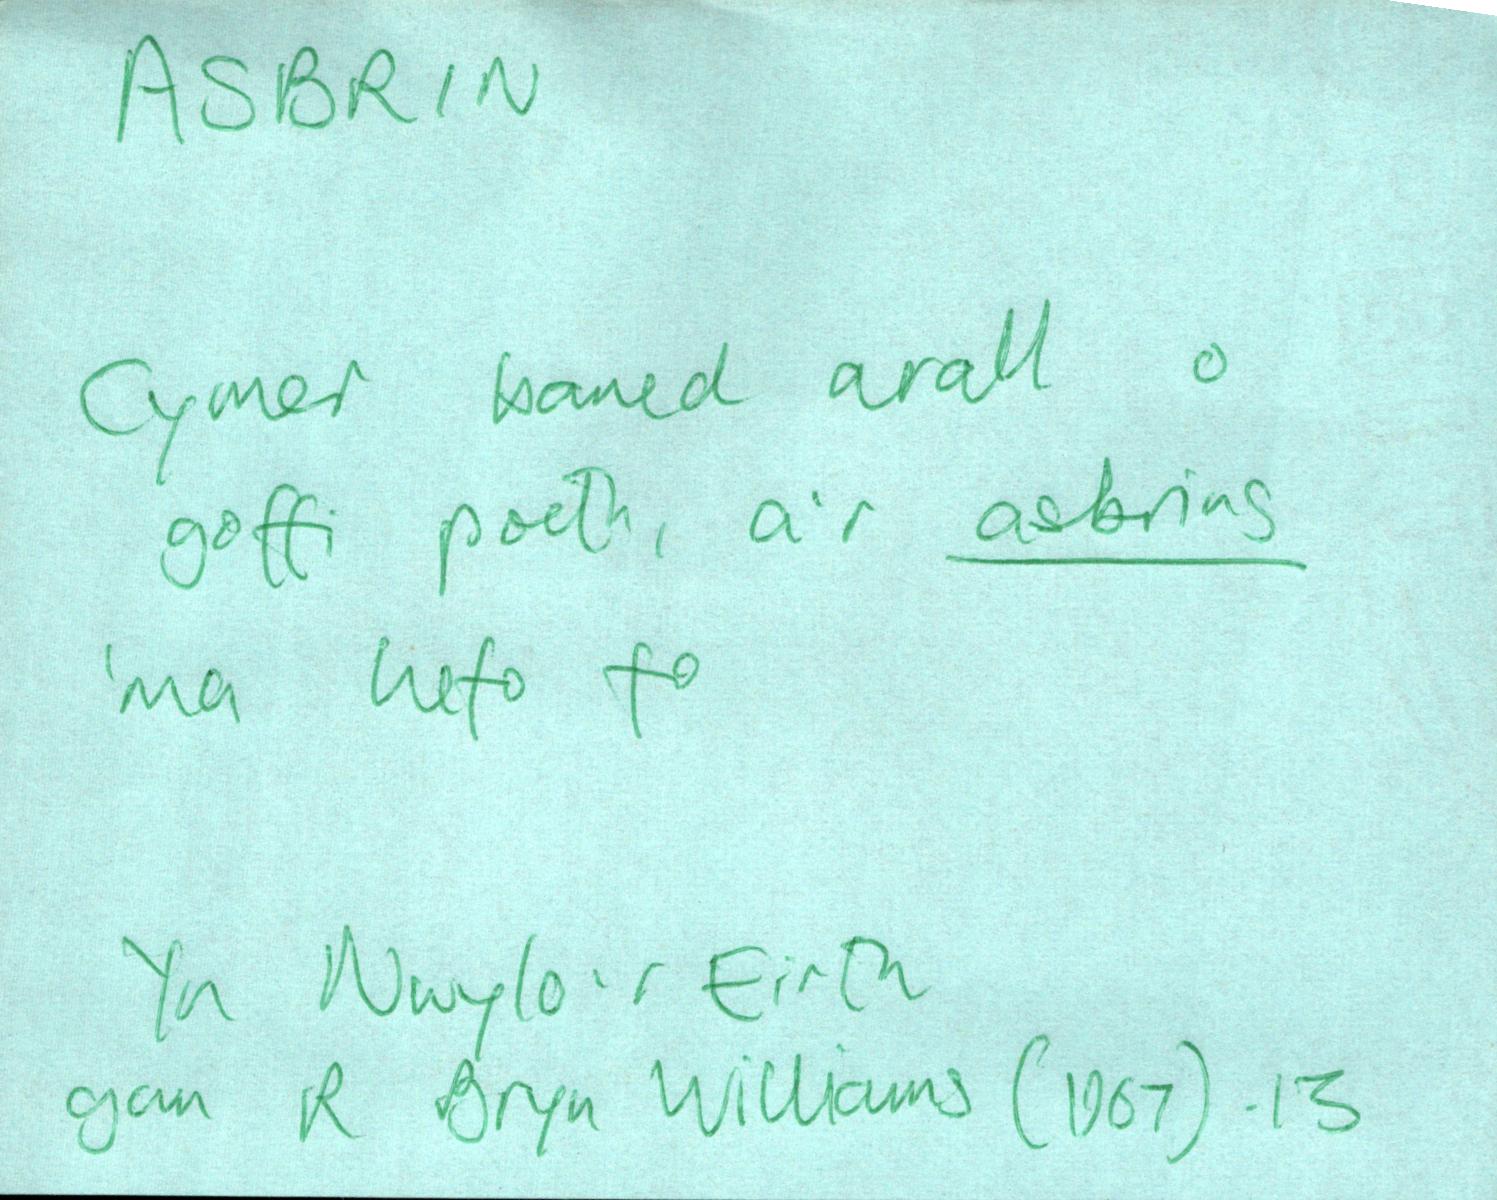 ASBRIN
Cymer baned arall o
goffi poeth, a'r asbrins
'ma hefo fo
Yn Nwylo'r Eirth
gan R Bryn Williams (1967) .13